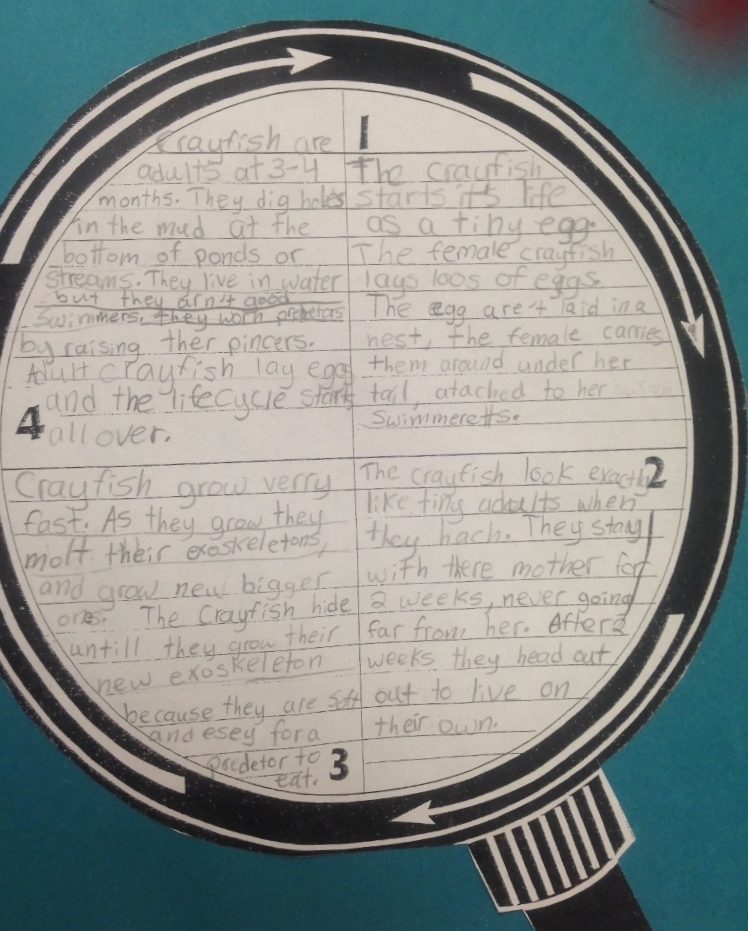 1
The crayfish
starts it's life
as a tiny egg.
The female crayfish
lays 100s of eggs.
The egg are't laid in a
nest, the female carries
them around under her
tail, atached to her
swimmeretts.
2
The crayfish look exactly
like tiny adults when
they hach. They stay
with there mother for
2 weeks, never going
far from her. After 2
weeks they head out
out to live on
their own.
3
Crayfish grow verry
fast. As they grow they
molt their exoskeletons,
and grow new bigger
ones. The Crayfish hide
untill they grow their
new exoskeleton
because they are soft
and esey for a
predetor to
eat.
4
Crayfish are
adults at 3-4
months. They dig holes
in the mud at the
bottom of ponds or
streams. They live in water
but they arn't good
swimmers, they worn predetas
by raising ther pincers.
Adult crayfish lay eggs
and the lifecycle starts
all over.